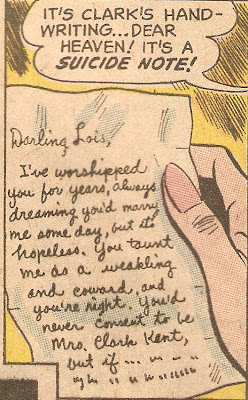 IT'S CLARK'S HAND-
WRITING...DEAR
HEAVEN! IT'S A
SUICIDE NOTE!
Darling Lois,
I've worshipped
you for years, always
dreaming you'd marry
me some day, but it's
hopeless. You taunt
me as a weakling
and coward, and
you're right. You'd
never consent to be
Mrs. Clark Kent,
but if ...